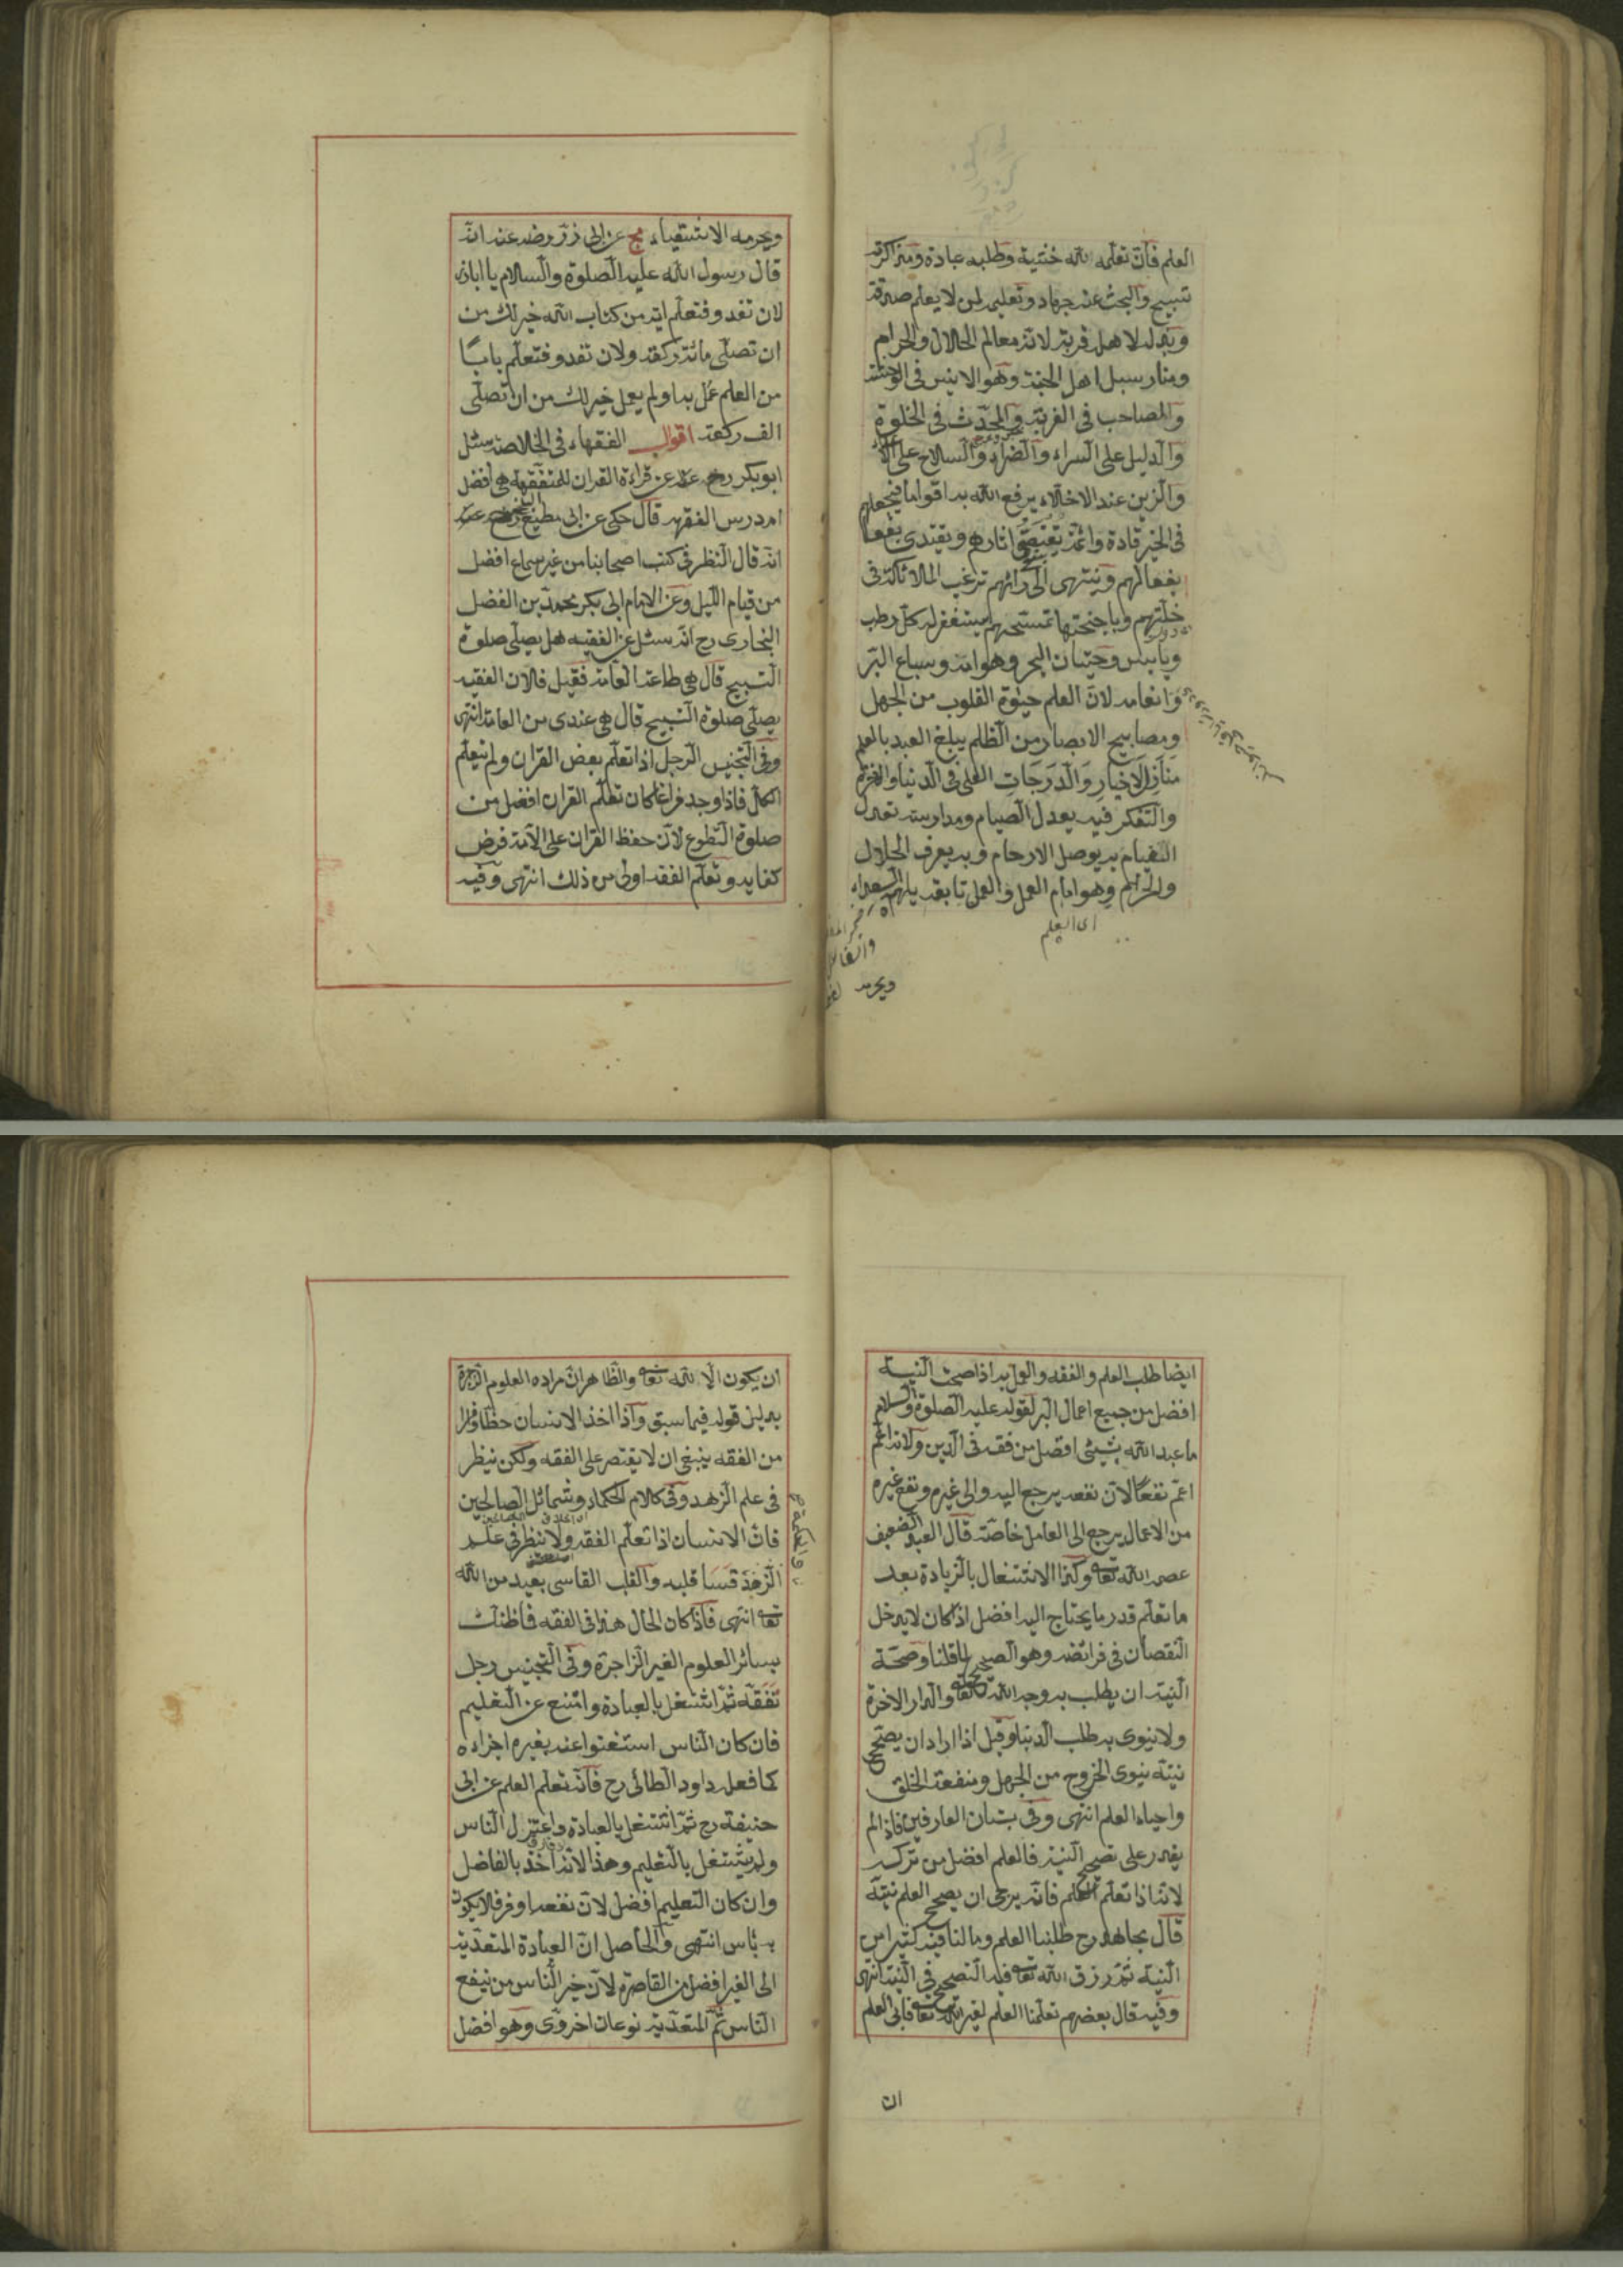 العلم فان تعلمه لله خشية وطلبه عبادة ومذاكرته
تسبيح والبحث عنه جهاد وتعليمه لمن لا يعلم صدقة
وبذله لاهله قربة لانه معالم الحلال والحرام
ومنار سبل اهل الجنة وهو الانيس في الوحشة
والمصاحب في الغربة والمحدث في الخلوة
والدليل على السراء والضراء والسلاح على الاعداء
والزين عند الاخلاء يرفع الله به اقواما فيجعلهم
في الخير قادة وائمة تقتص اثارهم ويقتدى
بفعالهم وينتهى الى رائهم ترغب الملائكة في
خلتهم وباجنحتها تمسحهم يستغفر لهم كل رطب
ويابس وحيتان البحر وهوامه وسباع البر
وانعامه لان العلم حيوة القلوب من الجهل
ومصابيح الابصار من الظلم يبلغ العبد بالعلم
منازل الاخيار والدرجات العلى في الدنيا والاخرة
والتفكر فيه يعدل الصيام ومدارسته تعدل
القيام به يوصل الارحام وبه يعرف الحلال
والحرام وهو امام العمل والعمل تابعه يلهمه السعداء
اى العلم
ويحرمه
ويحرمه الاشقياء مج عن ابى ذر رضه عنه انه
قال رسول الله عليه الصلوة والسلام يا اباذر
لان تغدو فتعلم اية من كتاب الله خير لك من
ان تصلى مائة ركعة ولان تغدو فتعلم بابًا
من العلم عمل به او لم يعمل خير لك من ان تصلى
الف ركعة اقوال الفقهاء في الخلاصة سئل
ابو بكر رح عن قراءة القران للمتفقهة هى افضل
ام درس الفقه قال حكى عن ابى مطيع
انه قال النظر في كتب اصحابنا من غير سماع افضل
من قيام الليل وعن الامام ابى بكر محمد بن الفضل
البخارى رح انه سئل عن الفقيه هل يصلى صلوة
التسبيح قال هى طاعة العامة فقيل فلان الفقيه
يصلى صلوة التسبيح قال هى عندى من العامة انتهى
وفى التجنيس الرجل اذا تعلم بعض القران ولم يتعلم
الكل فاذا وجد فراغا كان تعلم القران افضل من
صلوة التطوع لان حفظ القران على الامة فرض
كفاية وتعلم الفقه اولى من ذلك انتهى وفيه
ايضا طلب العلم والفقه والعمل به اذا صحت النية
افضل من جميع اعمال البر لقوله عليه الصلوة والسلام
ما عبد الله بشيئ افضل من فقه في الدين ولانه اعم
اعم نفعًا لان نفعه يرجع اليه والى غيره ونفع غيره
من الاعمال يرجع الى العامل خاصة قال العبد الضعيف
عصمه الله تعا وكذا الاشتغال بالزيادة بعد
ما تعلم قدر ما يحتاج اليه افضل اذا كان لا يدخل
النقصان في فرائضه وهو الصحيح لما قلنا وصحة
النية ان يطلب به وجه الله تعا والدار الاخرة
ولا ينوى به طلب الدنيا وقيل اذا اراد ان يصحح
نيته ينوى الخروج من الجهل ومنفعة الخلق
واحياء العلم انتهى وفى بستان العارفين فاذا لم
يقدر على تصحيح النية فالعلم افضل من تركه
لانه اذا تعلم العلم فانه يرجى ان يصحح العلم نيته
قال مجاهد رح طلبنا العلم وما لنا فيه كثير من
النية ثم رزق الله تعا فيه التصحيح في النية انتهى
وفيه قال بعضهم تعلمنا العلم لغير الله تعا فابى العلم
ان
ان يكون الا لله تعا والظاهر ان مراده العلوم الزاجرة
بدليل قوله فيما سبق واذا اخذ الانسان حظا وافرا
من الفقه ينبغى ان لا يقتصر على الفقه ولكن ينظر
فى علم الزهد وفى كلام الحكماء وشمائل الصالحين
فان الانسان اذا تعلم الفقه ولا ينظر فى علم
الزهد قسا قلبه والقلب القاسى بعيد من الله
تعا انتهى فاذا كان الحال هذا فى الفقه فما ظنك
بسائر العلوم الغير الزاجرة وفى التجنيس رجل
تفقه ثم اشتغل بالعبادة وامتنع عن التعليم
فان كان الناس استغنوا عنه بغيره اجزاءه
كما فعل داود الطائى رح فانه تعلم العلم عن ابى
حنيفة رح ثم اشتغل بالعبادة واعتزل الناس
ولم يشتغل بالتعليم وهذا لانه اخذ بالفاضل
وان كان التعليم افضل لان نفعه اوفر فلا يكون
به باس انتهى والحاصل ان العبادة المتعدية
الى الغير افضل من القاصرة لان خير الناس من ينفع
الناس ثم المتعدية نوعان اخروى وهو افضل
والحكمة